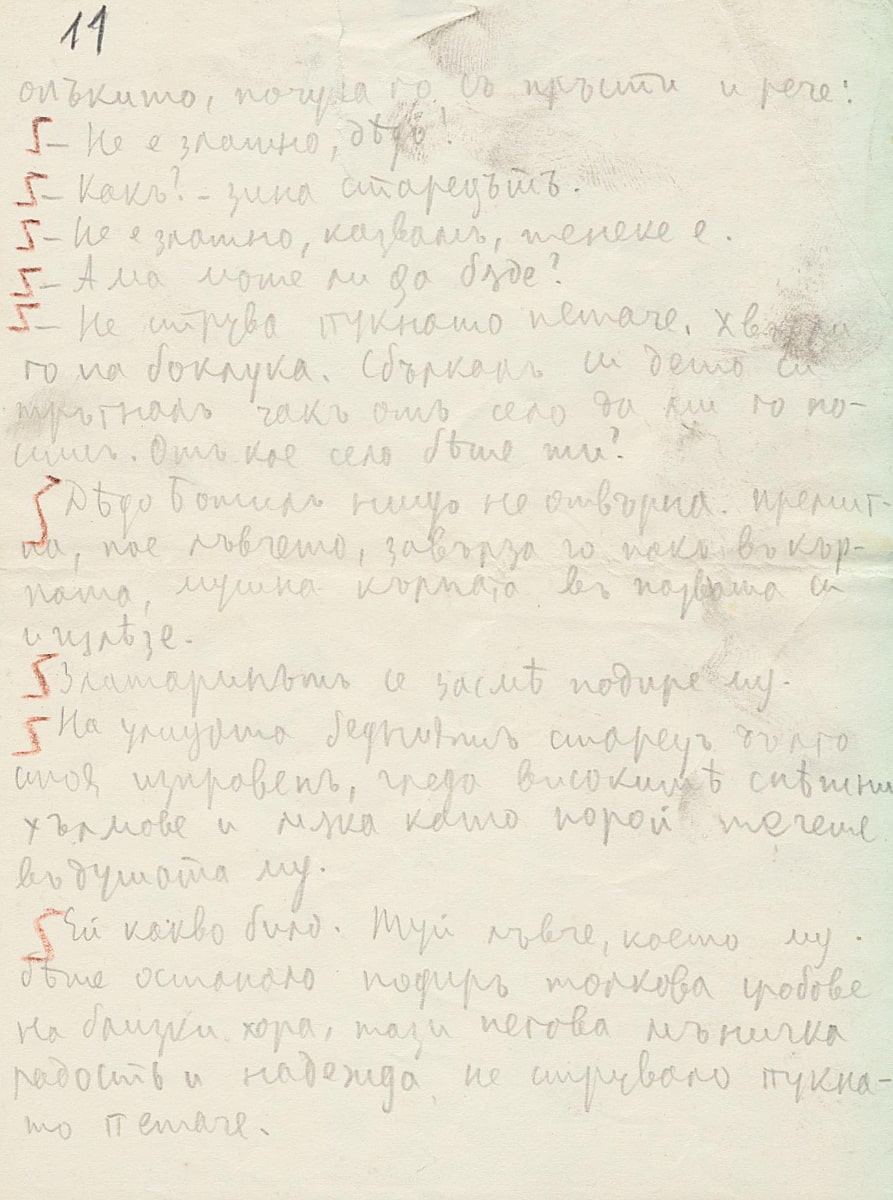 11
опъкито, почука го съ пръсти и рече:
— Не е златно, дѣдо!
— Какъ? – зина старецътъ.
— Не е златно, казвамъ, тенеке е.
— Ама може ли да бѫде?
— Не струва пукнато петаче. Хвърли
го на боклука. Сбъркалъ си дето си
тръгналъ чакъ отъ село да ми го но-
сишъ. Отъ кое село бѣше ти?
Дѣдо Божилъ нищо не отвърна. Премиг-
на, пое лъвчето, завърза го пакъ въ кър-
пата, мушна кърпата въ пазвата си
и излѣзе.
Златаринътъ се засмѣ подире му.
На улицата бедниятъ старецъ дълго
стоя изправенъ, гледа високитѣ снѣжни
хълмове и мѫка като порой течеше
въ душата му.
Ей какво било. Туй лъвче, което му
бѣше останало подиръ толкова гробове
на близки хора, тази негова мъничка
радость и надежда, не струвало пукна-
то петаче.